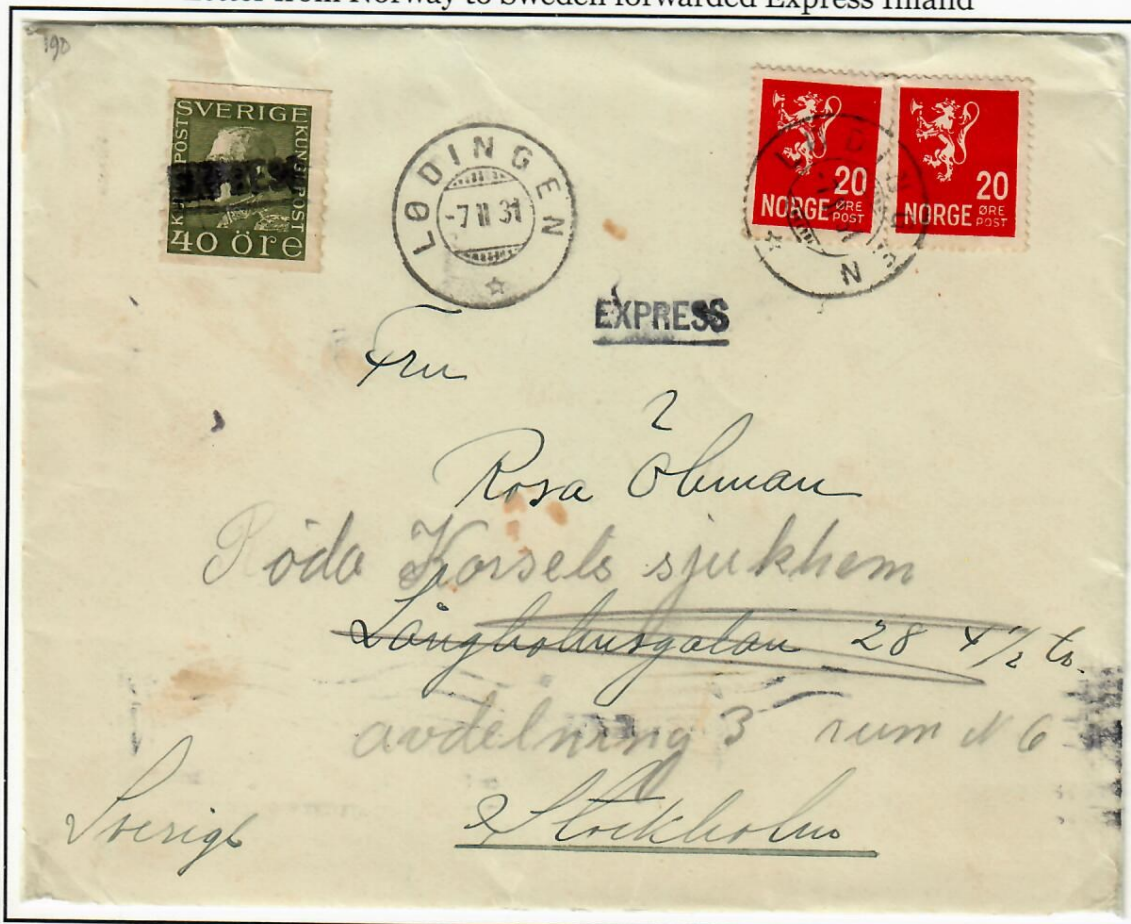 Letter from Norway to Sweden forwarded Express Inland
190
SVERIGE
KUNGL. POST
40 öre
EXPRESS
LØDINGEN
-7 11 31
20
NORGE ØRE POST
20
NORGE ØRE POST
LØDINGEN
EXPRESS
Fru
Rosa Öhman
Röda Korsets sjukhem
Långholmsgatan 28 4 1/2 tr.
avdelning 3 rum N 6
Sverige
Stockholm